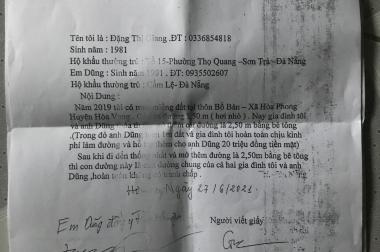 Tên tôi là : Đặng Thị Giang .ĐT : 0336854818
Sinh năm : 1981
Hộ khẩu thường trú : Tổ 15-Phường Thọ Quang –Sơn Trà –Đà Nẵng
Em Dũng : Sinh năm 1991 . ĐT: 0935502607
Hộ khẩu thường trú : Cẩm Lệ-Đà Nẵng
Nội Dung :
Năm 2019 tôi có mua miếng đất tại thôn Bồ Bản – Xã Hòa Phong
Huyện Hòa Vang . 1,50 m ( hơi nhỏ ) . Nay gia đình tôi
và anh Dũng đường là 2,50 m bằng bê tông
(Trong đó anh Dũng đất và gia đình tôi hoàn toàn chịu kinh
phí làm đường và thêm cho anh Dũng 20 triệu đồng tiền mặt)
Sau khi đi đến thống nhất và mở thêm đường là 2,50m bằng bê tông
thì con đường này là đường chung của cả hai gia đình tôi và anh
Dũng ,hoàn toàn không có tranh chấp .
Ngày 27/6/2021
Em Dũng đồng ý Người viết giấy